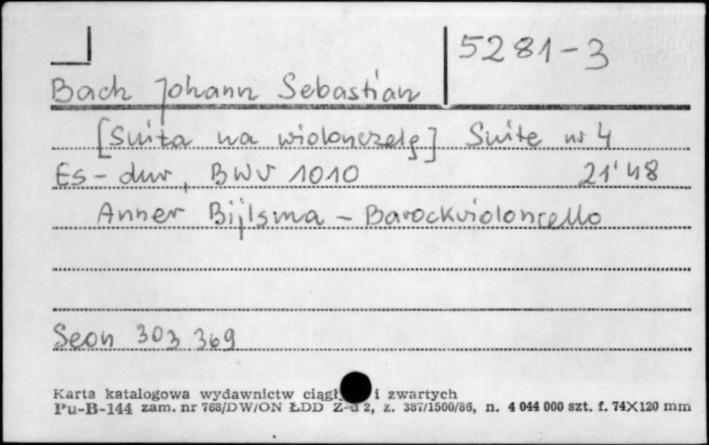 5281-3
Bach Johann Sebastian
[Suita na wiolonczelę] Suite nr 4
Es-dur, BWV 1010 21'48
Anner Bijlsma - Barockvioloncello
Seon 303 369
Karta katalogowa wydawnictw ciągł i zwartych
Pu-B-144 zam. nr 768/DW/ON ŁDD Z-d 2, z. 387/1500/86, n. 4 044 000 szt. f. 74×120 mm